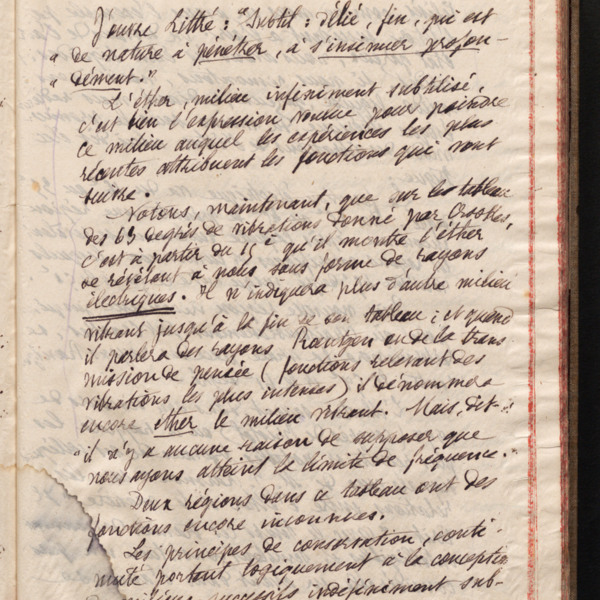 J'ouvre Littré : "Subtil : délié, fin, qui est
" de nature à pénétrer, à s'insinuer profon-
" dément."
L'éther, milieu infiniment subtilisé,
c'est bien l'expression voulue pour peindre
ce milieu auquel les expériences les plus
récentes attribuent les fonctions qui vont
suivre.
Notons, maintenant, que sur les tableau
des 63 degrés de vibrations donné par Crookes,
c'est à partir du 15e qu'il montre l'éther
se révélant à nous sous forme de rayons
électriques. Il n'indiquera plus d'autre milieu
vibrant jusqu'à la fin de son tableau ; et quand
il parlera des rayons Rœntgen ou de la trans
mission de pensée (fonctions relevant des
vibrations les plus intenses) il dénommera
encore éther le milieu vibrant. Mais, dit-
"il n'y a aucune raison de supposer que
nous ayons atteint la limite de fréquence."
Deux régions dans ce tableau ont des
fonctions encore inconnues.
Les principes de conservation, conti-
nuité portant logiquement à la conception
milieux successifs indéfiniment sub-